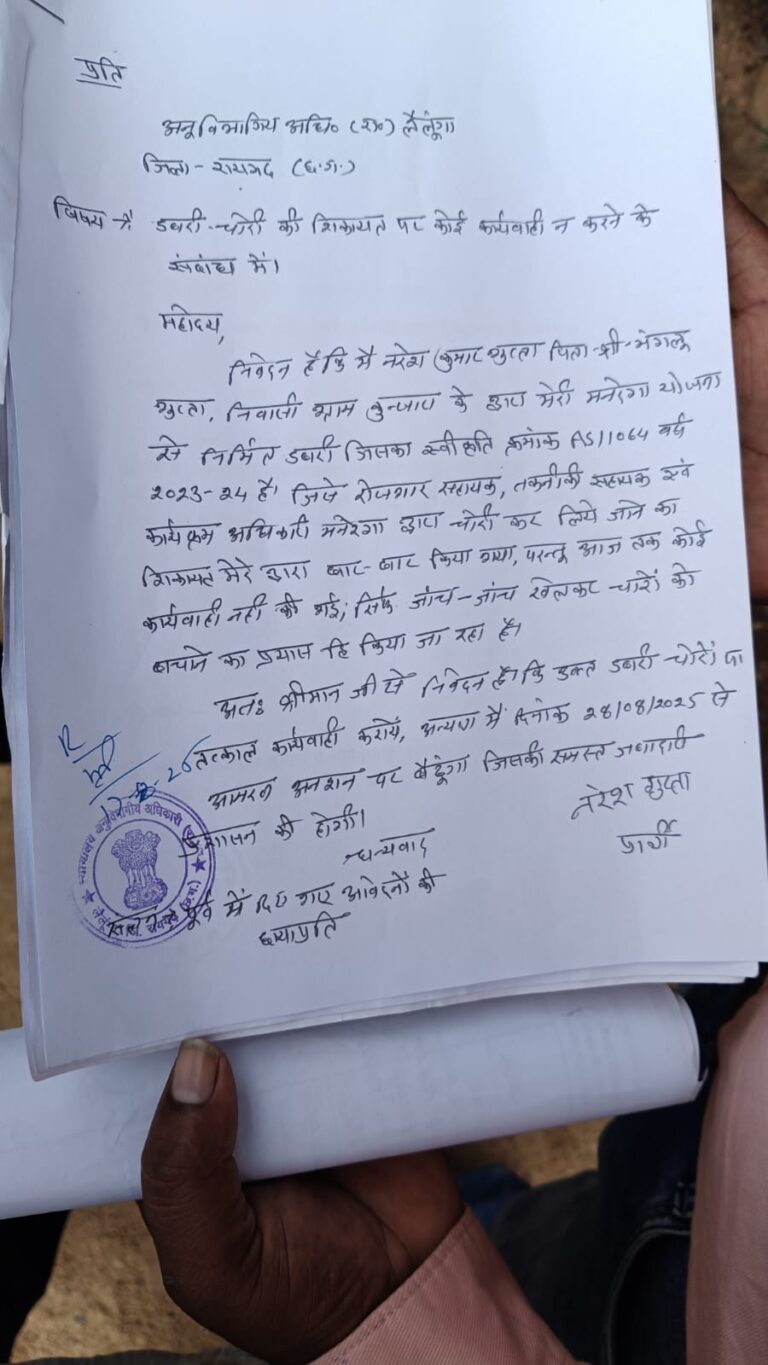 प्रति
अनुविभागिय अधि० (रा०) लैलूंगा
जिला- रायगढ (छ.ग.)
विषय :- डबरी-चोरी की शिकायत पर कोई कार्यवाही न करने के
संबंध में।
महोदय,
निवेदन है कि मै नरेश कुमार गुप्ता पिता-श्री-मंगलू
गुप्ता, निवासी ग्राम कुन्जारा के द्वारा मेरी मनरेगा योजना
से निर्मित डबरी जिसका स्वीकृति क्रमांक AS/1064 वर्ष
2023-24 है। जिसे रोजगार सहायक, तकनीकी सहायक एवं
कार्यक्रम अधिकारी मनरेगा द्वारा चोरी कर लिये जाने का
शिकायत मेरे द्वारा बार-बार किया गया, परन्तु आज तक कोई
कार्यवाही नही की गई; सिर्फ जांच-जांच खेलकर चोरों को
बचाने का प्रयास हि किया जा रहा है।
अतः श्रीमान जी से निवेदन है कि उक्त डबरी चोरों पर
तत्काल कार्यवाही करायें, अन्यथा मैं दिनांक 28/08/2025 से
आमरन अनशन पर बैठूंगा जिसकी समस्त जवाबदारी
प्रशासन की होगी।
धन्यवाद
नरेश गुप्ता
प्रार्थी
पूर्व में दिए गए आवेदनों की
छायाप्रति
न्यायालय अनुविभागीय अधिकारी